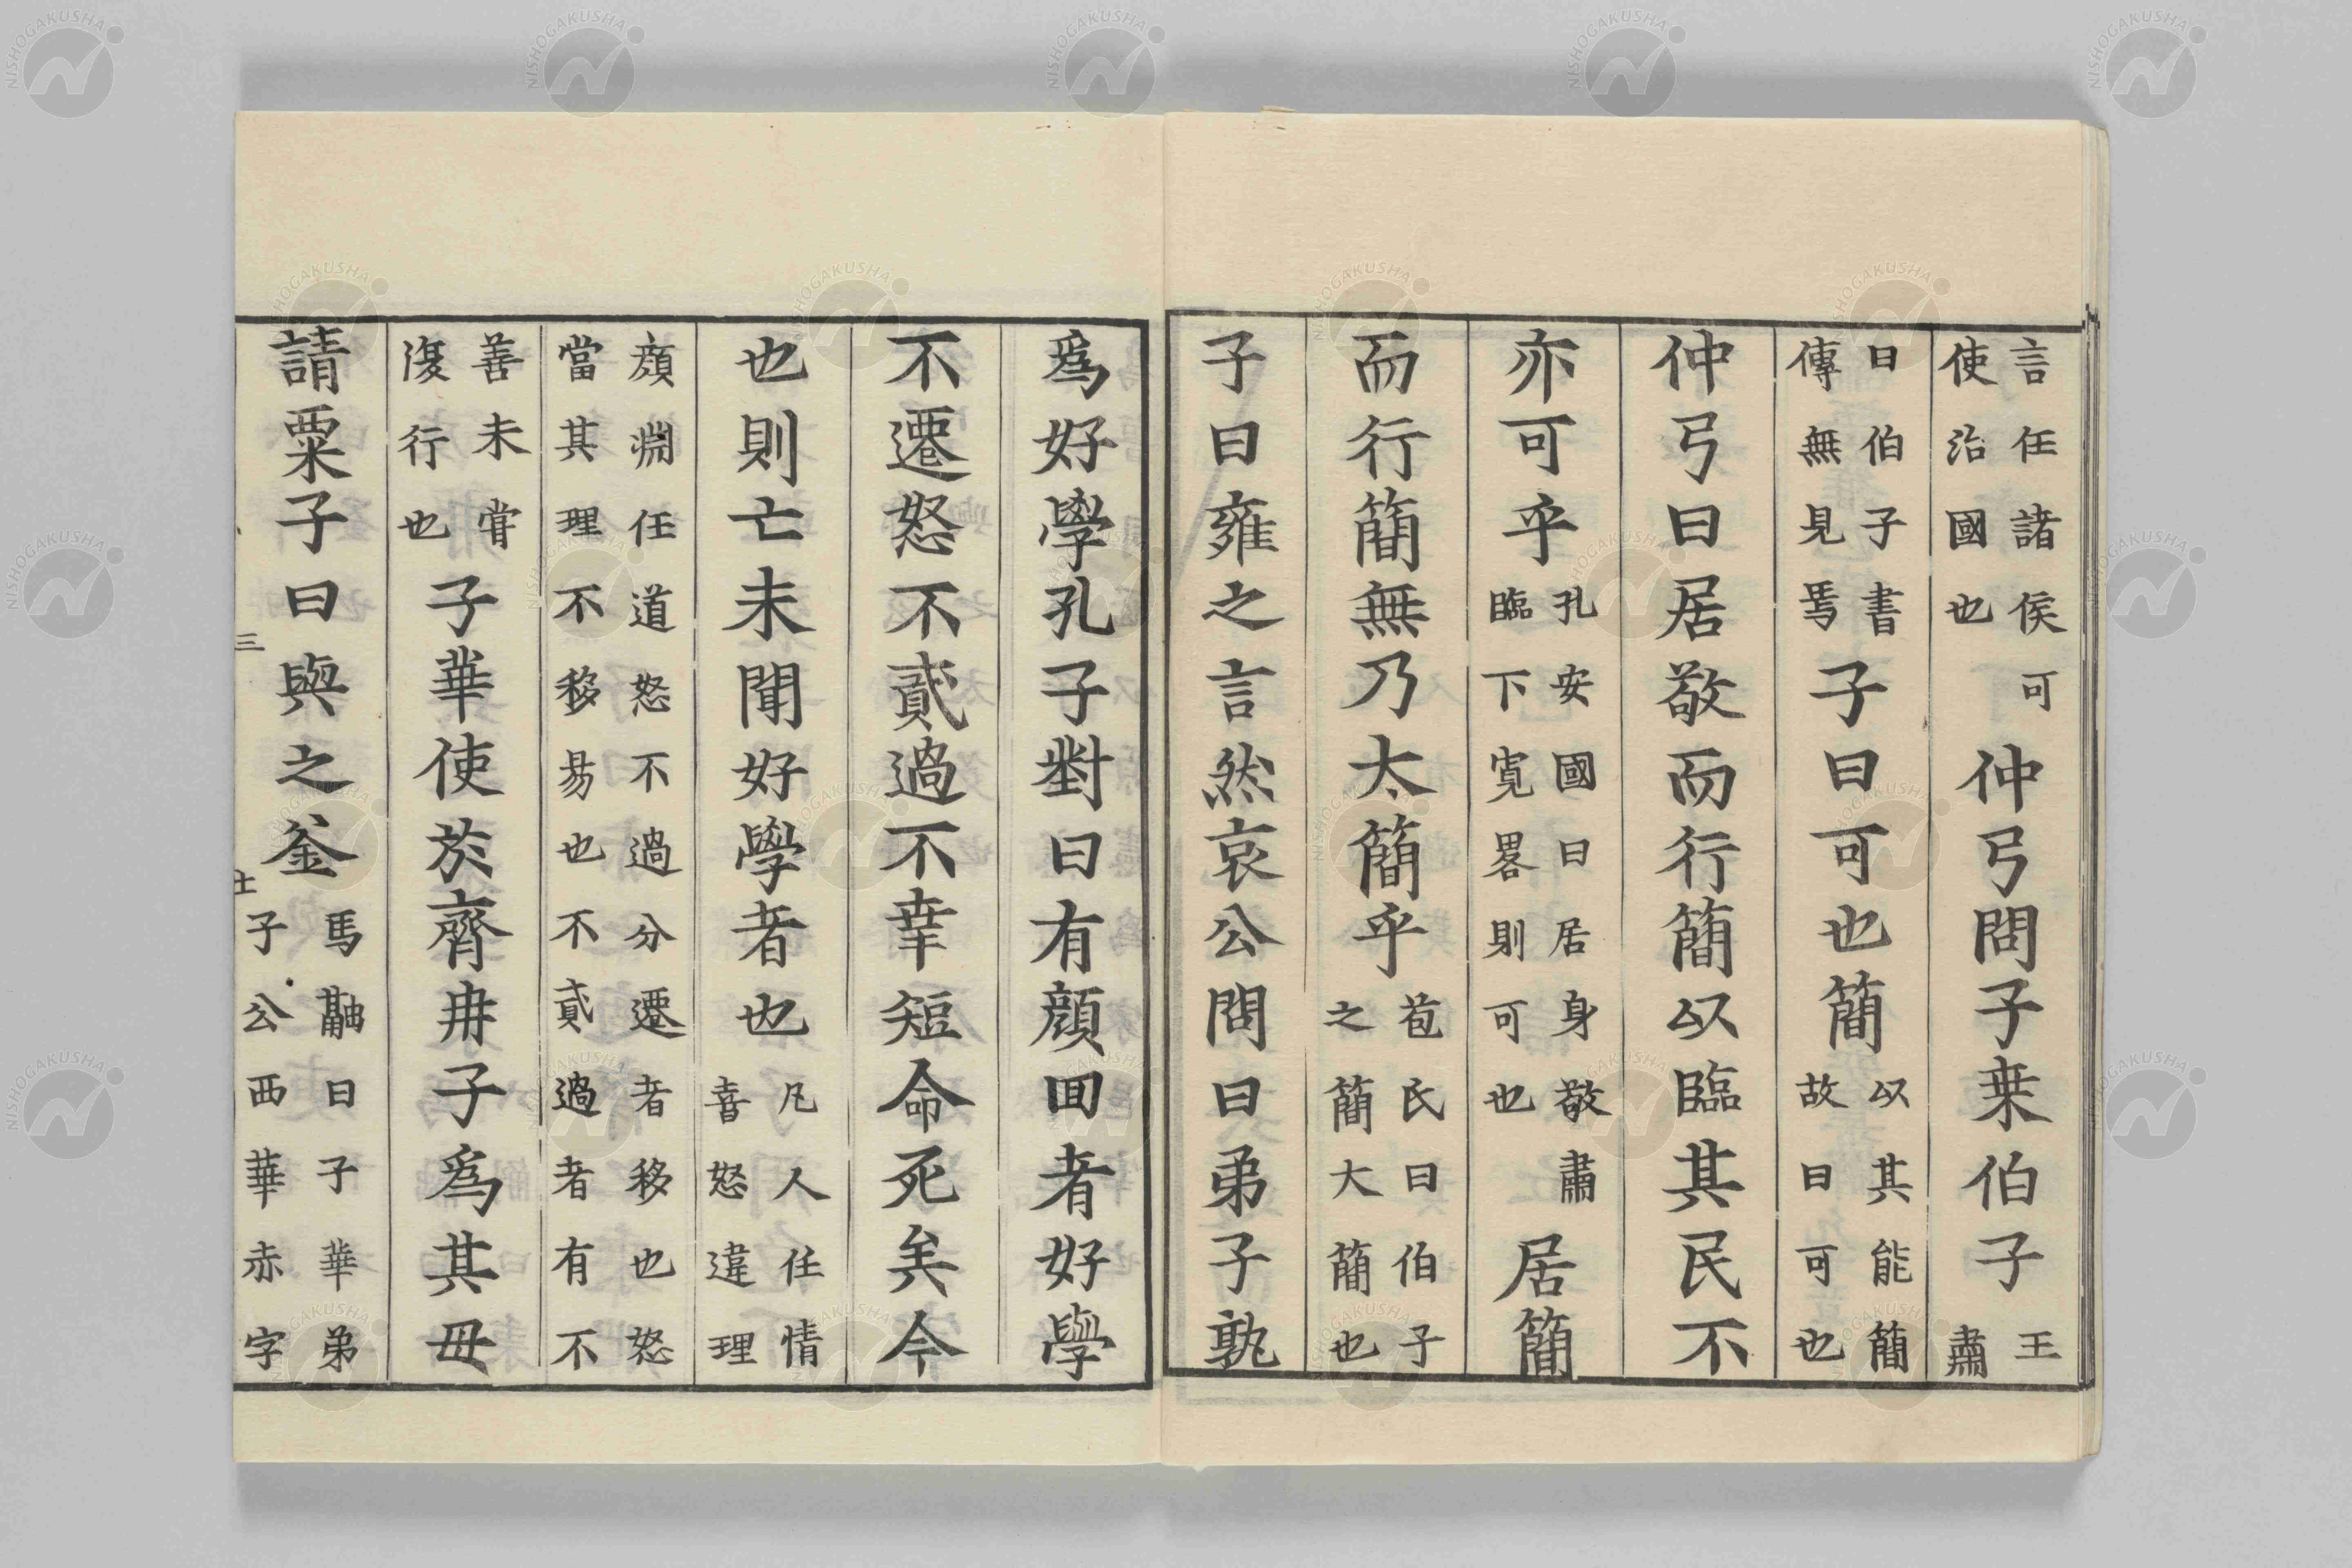 言任諸侯可使治國也仲弓問子桒伯子王肅
曰伯子書傳無見焉子曰可也簡以其能簡故曰可也
仲弓曰居敬而行簡以臨其民不
亦可乎孔安國曰居身敬肅臨下寛畧則可也居簡
而行簡無乃太簡乎苞氏曰伯子之簡大簡也
子曰雍之言然哀公問曰弟子孰
爲好學孔子對曰有顔回者好學
不遷怒不貳過不幸短命死矣今
也則亡未聞好學者也凡人任情喜怒違理
顔淵任道怒不過分遷者移也怒當其理不移易也不貳過者有不
善未甞復行也子華使於齊冉子爲其母
請粟子曰與之釜馬融曰子華弟子公西華赤字
三
士
NISHOGAKUSHA